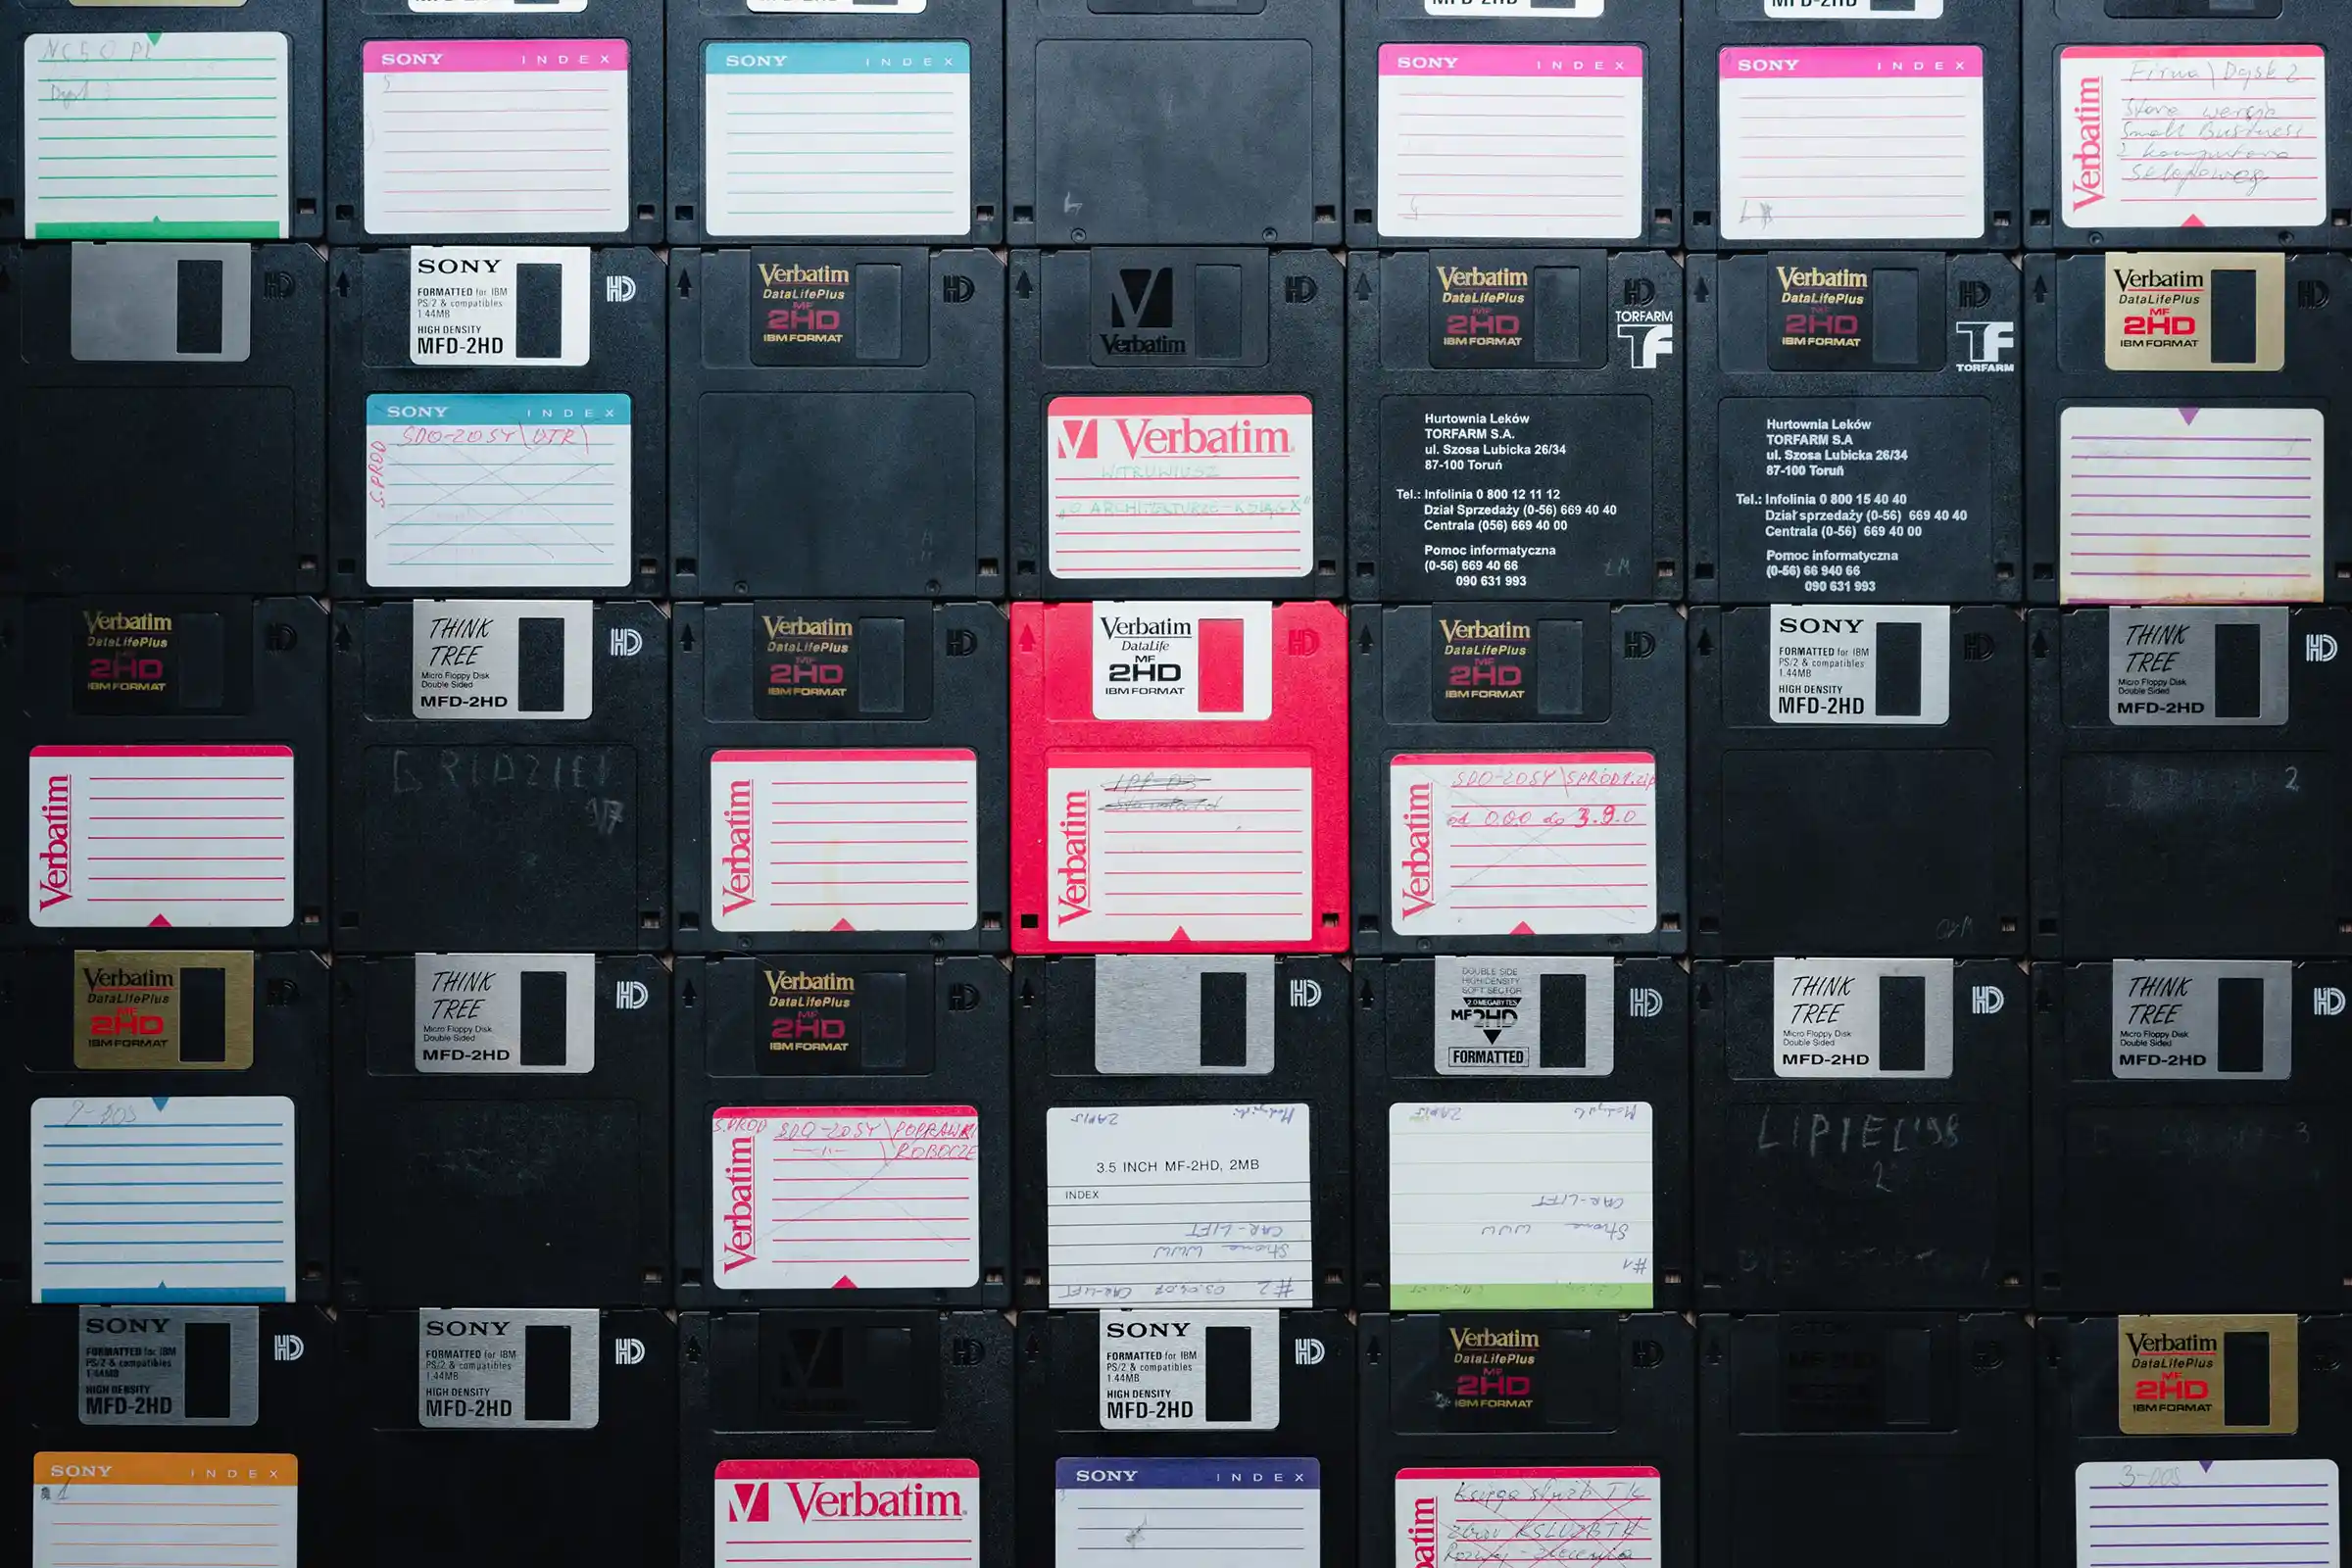 NC50 PL
SONY INDEX
SONY INDEX
SONY INDEX
SONY INDEX
Verbatim
Firma \ Dysk 2
Stara wersja
Small Business
z komputera
sklepowego
SONY
FORMATTED for IBM
PS/2 & compatibles
1.44MB
HIGH DENSITY
MFD-2HD
HD
SONY INDEX
S.PROD
SDO-20SY\DTR\
Verbatim
DataLifePlus
MF
2HD
IBM FORMAT
HD
Verbatim
HD
Verbatim
WITRUWIUSZ
"O ARCHITEKTURZE - KSIĄG X"
Verbatim
DataLifePlus
MF
2HD
IBM FORMAT
HD
TORFARM
TF
Hurtownia Leków
TORFARM S.A.
ul. Szosa Lubicka 26/34
87-100 Toruń
Tel.: Infolinia 0 800 12 11 12
Dział Sprzedaży (0-56) 669 40 40
Centrala (056) 669 40 00
Pomoc informatyczna
(0-56) 669 40 66
090 631 993
Verbatim
DataLifePlus
MF
2HD
IBM FORMAT
HD
TF
TORFARM
Hurtownia Leków
TORFARM S.A
ul. Szosa Lubicka 26/34
87-100 Toruń
Tel.: Infolinia 0 800 15 40 40
Dział sprzedaży (0-56) 669 40 40
Centrala (0-56) 669 40 00
Pomoc informatyczna
(0-56) 66 940 66
090 631 993
Verbatim
DataLifePlus
MF
2HD
IBM FORMAT
HD
Verbatim
DataLifePlus
MF
2HD
IBM FORMAT
HD
Verbatim
THINK
TREE
Micro Floppy Disk
Double Sided
MFD-2HD
HD
Verbatim
DataLifePlus
MF
2HD
IBM FORMAT
HD
Verbatim
Verbatim
DataLife
MF
2HD
IBM FORMAT
HD
Verbatim
Verbatim
DataLifePlus
MF
2HD
IBM FORMAT
HD
Verbatim
SDO-20SY\SPROD1.zip
od 0.0.0 do 3.9.0
SONY
FORMATTED for IBM
PS/2 & compatibles
1.44MB
HIGH DENSITY
MFD-2HD
HD
THINK
TREE
Micro Floppy Disk
Double Sided
MFD-2HD
HD
2
Verbatim
DataLifePlus
MF
2HD
IBM FORMAT
HD
2-DOS
THINK
TREE
Micro Floppy Disk
Double Sided
MFD-2HD
HD
Verbatim
DataLifePlus
MF
2HD
IBM FORMAT
HD
Verbatim
S.PROD SDO-20SY\POPRAWKI
ROBOCZE
HD
ZAPIS
3.5 INCH MF-2HD, 2MB
INDEX
CAR-LIFT
Strona WWW
#2 03.04.07 CAR-LIFT
DOUBLE SIDE
HIGH DENSITY
SOFT SECTOR
2.0 MEGABYTES
MF2HD
FORMATTED
HD
ZAPIS
CAR-LIFT
Strona WWW
#1
THINK
TREE
Micro Floppy Disk
Double Sided
MFD-2HD
HD
LIPIEC'98
2
THINK
TREE
Micro Floppy Disk
Double Sided
MFD-2HD
HD
SONY
FORMATTED for IBM
PS/2 & compatibles
1.44MB
HIGH DENSITY
MFD-2HD
HD
SONY INDEX
1
SONY
FORMATTED for IBM
PS/2 & compatibles
1.44MB
HIGH DENSITY
MFD-2HD
HD
HD
Verbatim
SONY
FORMATTED for IBM
PS/2 & compatibles
1.44MB
HIGH DENSITY
MFD-2HD
HD
SONY INDEX
Verbatim
DataLifePlus
MF
2HD
IBM FORMAT
HD
Księga służb TK
KSLUZBTK
Verbatim
DataLifePlus
MF
2HD
IBM FORMAT
3-DOS